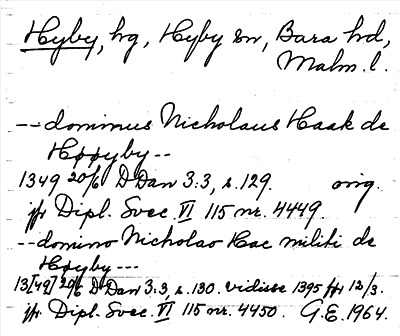 Hyby, hg, Hyby sn, Bara hd,
Malm. l.
--dominus Nicholaus Haak de
Høøyby--
1349 20/6 D Dan 3:3, s. 129. orig.
jfr Dipl. Svec. VI 115 nr. 4449.
--domino Nicholao Hac militi de
Høyby---
13[49] 20/6 D Dan 3:3, s. 130. vidisse 1395 ffr 12/3.
jfr Dipl. Svec. VI 115 nr. 4450. G.E. 1964.